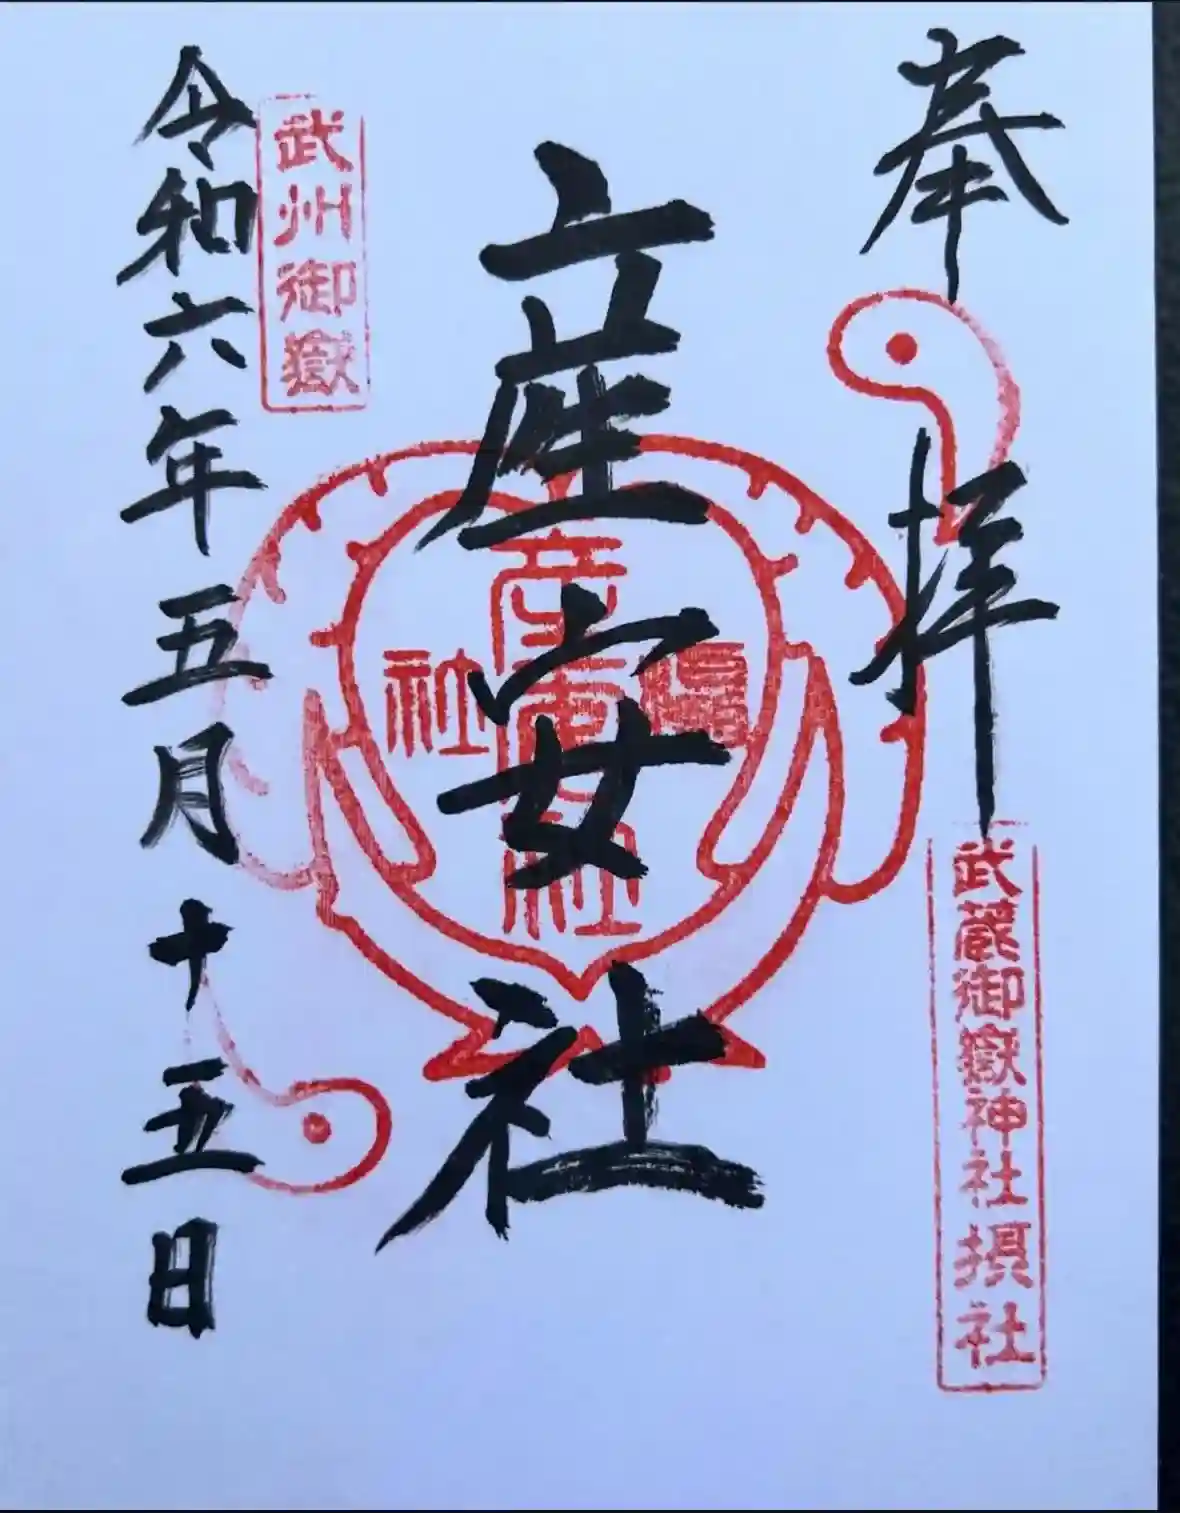 奉拝
武蔵御嶽神社摂社
産安社
産安社
社
武州御嶽
令和六年五月十五日